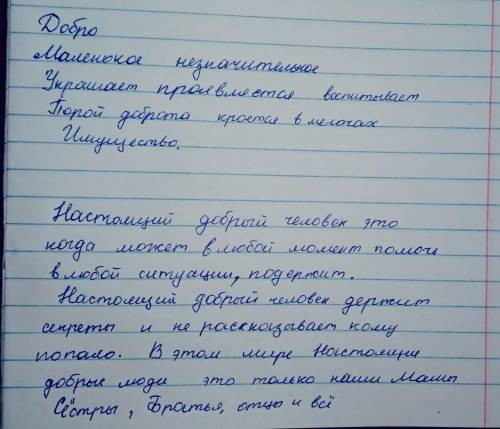 Добро
Маленокое незначительное
Украшает проявляется воспитывает
Порой доброта кроется в мелочах
Имущество.
Настоящий добрый человек это
когда может в любой момент помоч
в любой ситуации, подержит.
Настоящий добрый человек держит
секреты и не рассказывает кому
попало. В этом мире Настоящие
добрые люди это только наши Мамы
Сёстры, Братья, отцы и всё